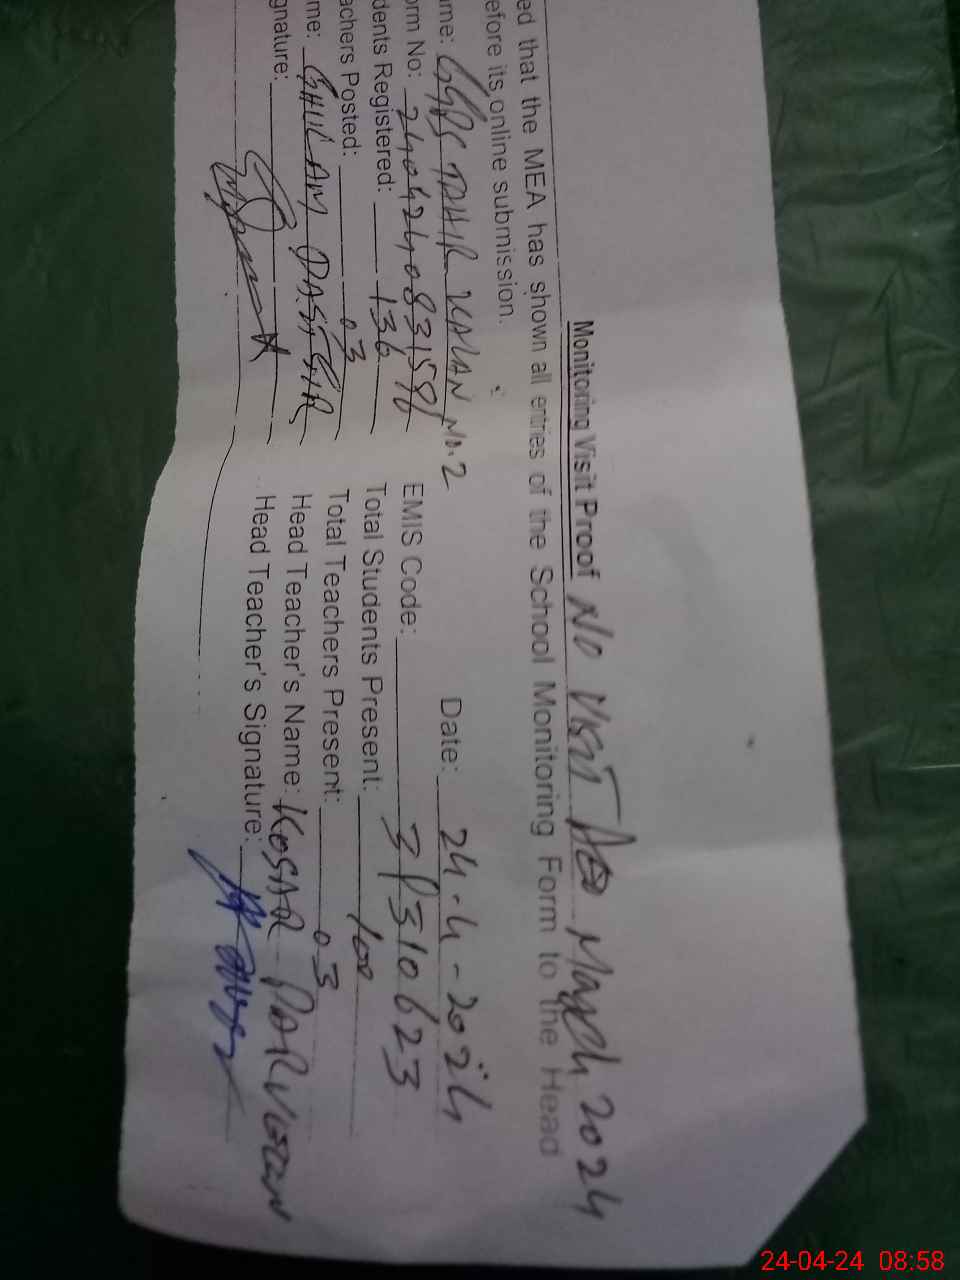 Monitoring Visit Proof No visit AEO March 2024
ed that the MEA has shown all entries of the School Monitoring Form to the Head
efore its online submission.
me: GGPS TAHIR KALAN No.2 Date: 24-4-2024
orm No: EMIS Code:
dents Registered: 136 Total Students Present: 100
achers Posted: 03 Total Teachers Present: 03
me: GHULAM DASTGIR Head Teacher's Name: KOSAR PARVEEN
gnature: Head Teacher's Signature:
24-04-24 08:58